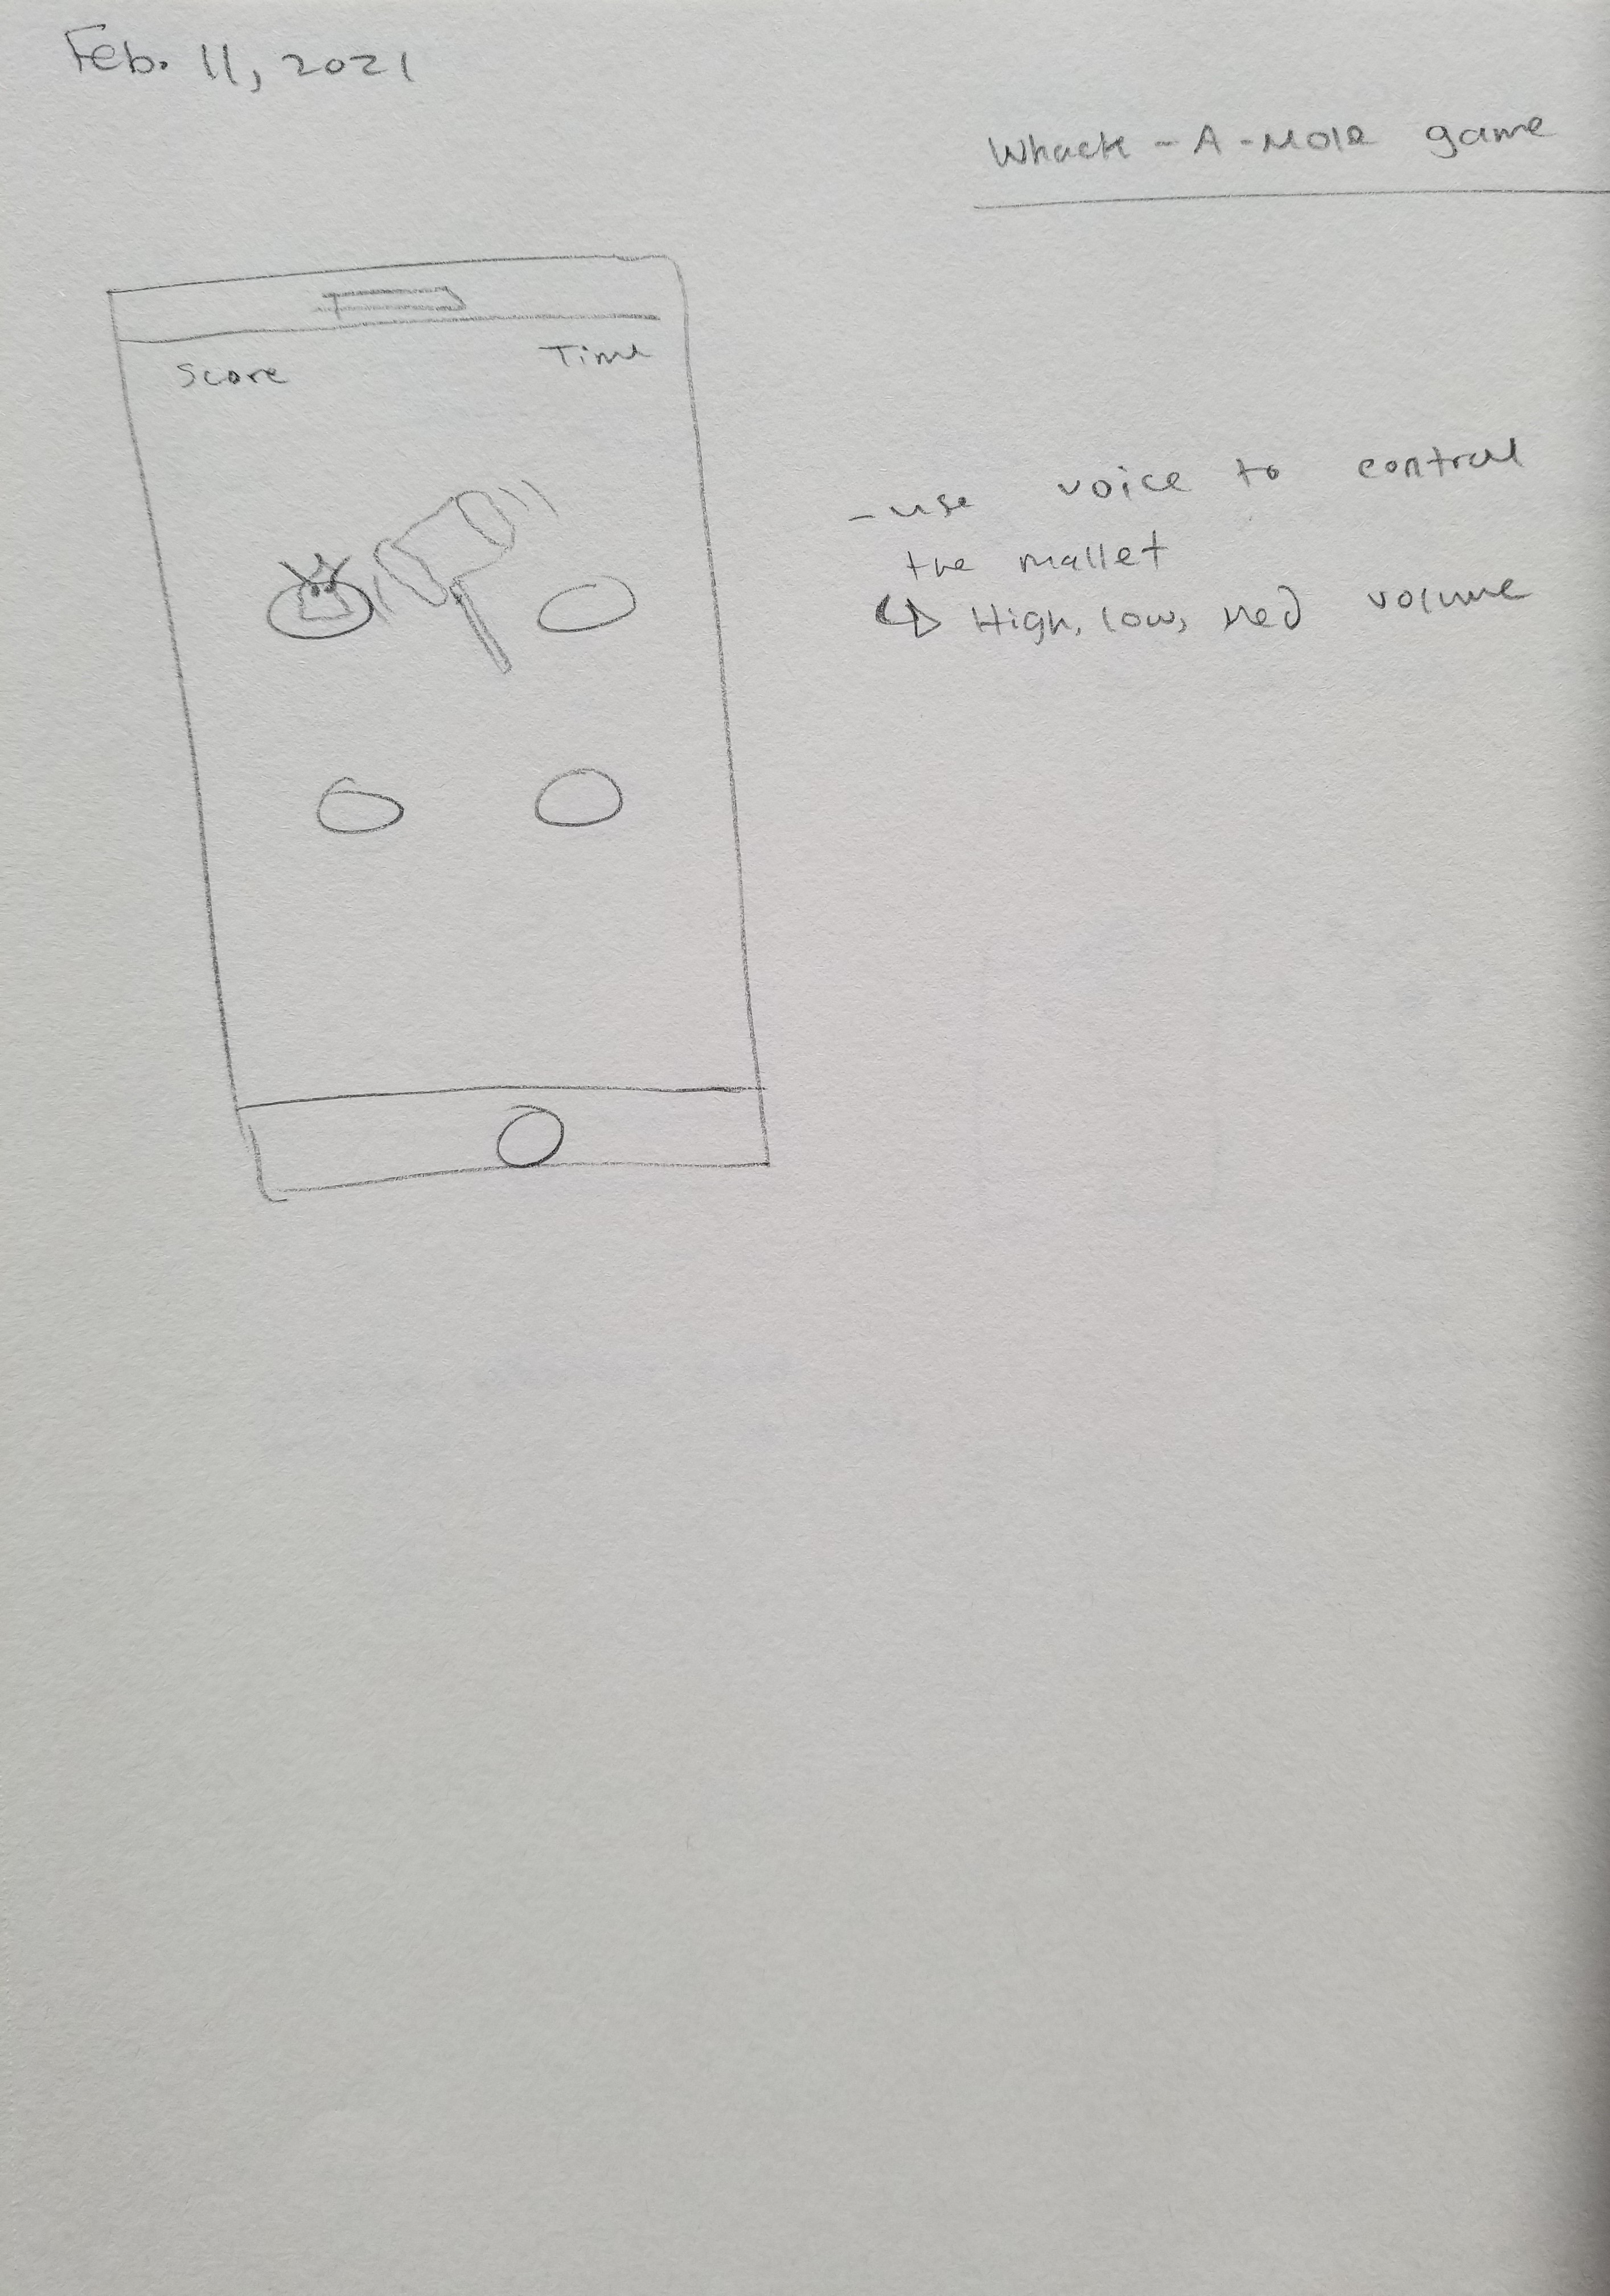 Feb. 11, 2021
Whack-A-Mole game
Score Time
- use voice to control
the mallet
↳ High, low, Med volume